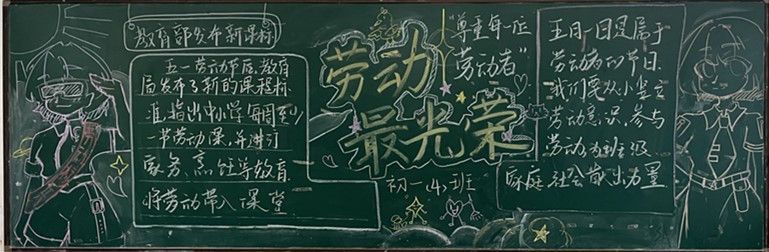 教育部发布新课标
五一劳动节后,教育
局发布了新的课程标
准,指出中小学每周至少
一节劳动课,并进行
家务、烹饪等教育
将劳动带入课堂
劳动
最光荣
初一(4)班
“尊重每一位
劳动者”
五月一日是属于
劳动者的节日.
我们要从小树立
劳动意识,参与
劳动,为班级
家庭 社会献出力量